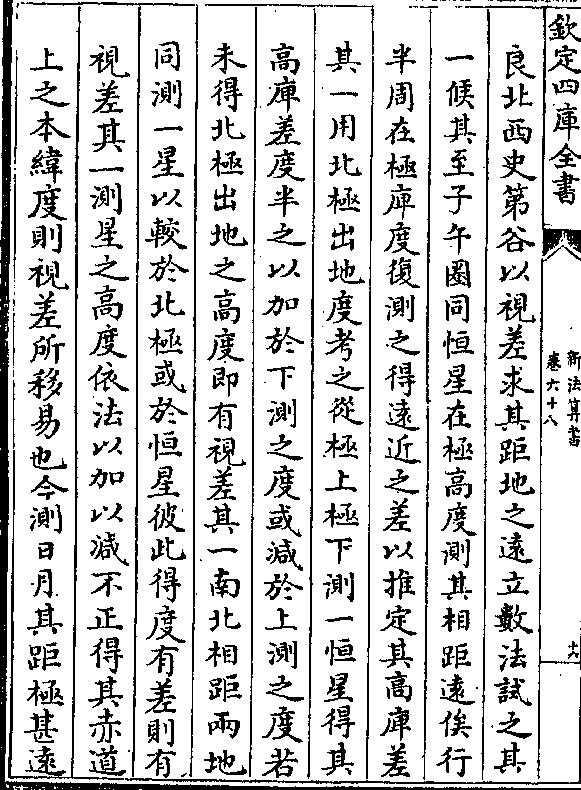 欽定四庫全書
新法算書
卷六十八
十六
良北西史第谷以視差求其距地之遠立數法試之其
一候其至子午圈同恒星在極高度測其相距遠俟行
半周在極庳度復測之得遠近之差以推定其高庳差
其一用北極出地度考之從極上極下測一恒星得其
高庳差度半之以加於下測之度或減於上測之度若
未得北極出地之高度即有視差其一南北相距兩地
同測一星以較於北極或於恒星彼此得度有差則有
視差其一測星之高度依法以加以減不正得其赤道
上之本緯度則視差所移易也今測日月其距極甚遠